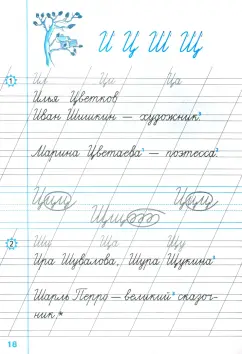 И Ц Ш Щ
1
Ил Ци Ца
Илья Цветков
Иван Шишкин — художник.
Марина Цветаева¹ — поэтесса.
2
Ши Ща Щу
Ира Шувалова, Шура Щукина
Шарль Перро — великий* сказоч-
ник.*
18